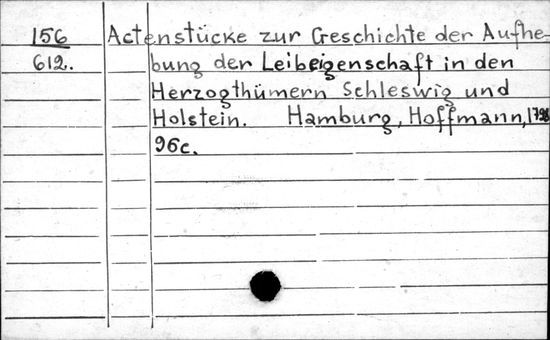 156 Actenstücke zur Geschichte der Aufhe-
612. bung der Leibeigenschaft in den
Herzogthümern Schleswig und
Holstein. Hamburg, Hoffmann, 1798
96c.